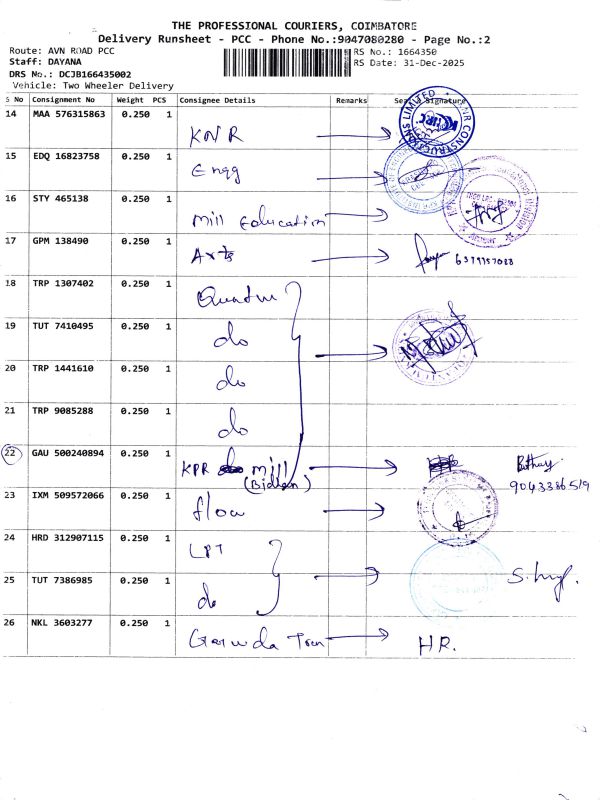 THE PROFESSIONAL COURIERS, COIMBATORE
Delivery Runsheet - PCC - Phone No.:9047080280 - Page No.:2
Route: AVN ROAD PCC
RS No.: 1664350
Staff: DAYANA
RS Date: 31-Dec-2025
DRS No.: DCJB166435002
Vehicle: Two Wheeler Delivery
S No Consignment No Weight PCS Consignee Details Remarks Seal & Signature
14 MAA 576315863 0.250 1 KNR
15 EDQ 16823758 0.250 1 Engg
16 STY 465138 0.250 1 Mill Education
17 GPM 138490 0.250 1 Arts 6379757088
18 TRP 1307402 0.250 1
19 TUT 7410495 0.250 1 do
20 TRP 1441610 0.250 1 do
21 TRP 9085288 0.250 1 do
22 GAU 500240894 0.250 1 KPR mill
9043386519
23 IXM 509572066 0.250 1 flow
24 HRD 312907115 0.250 1 LPT
25 TUT 7386985 0.250 1 do
26 NKL 3603277 0.250 1 HR.